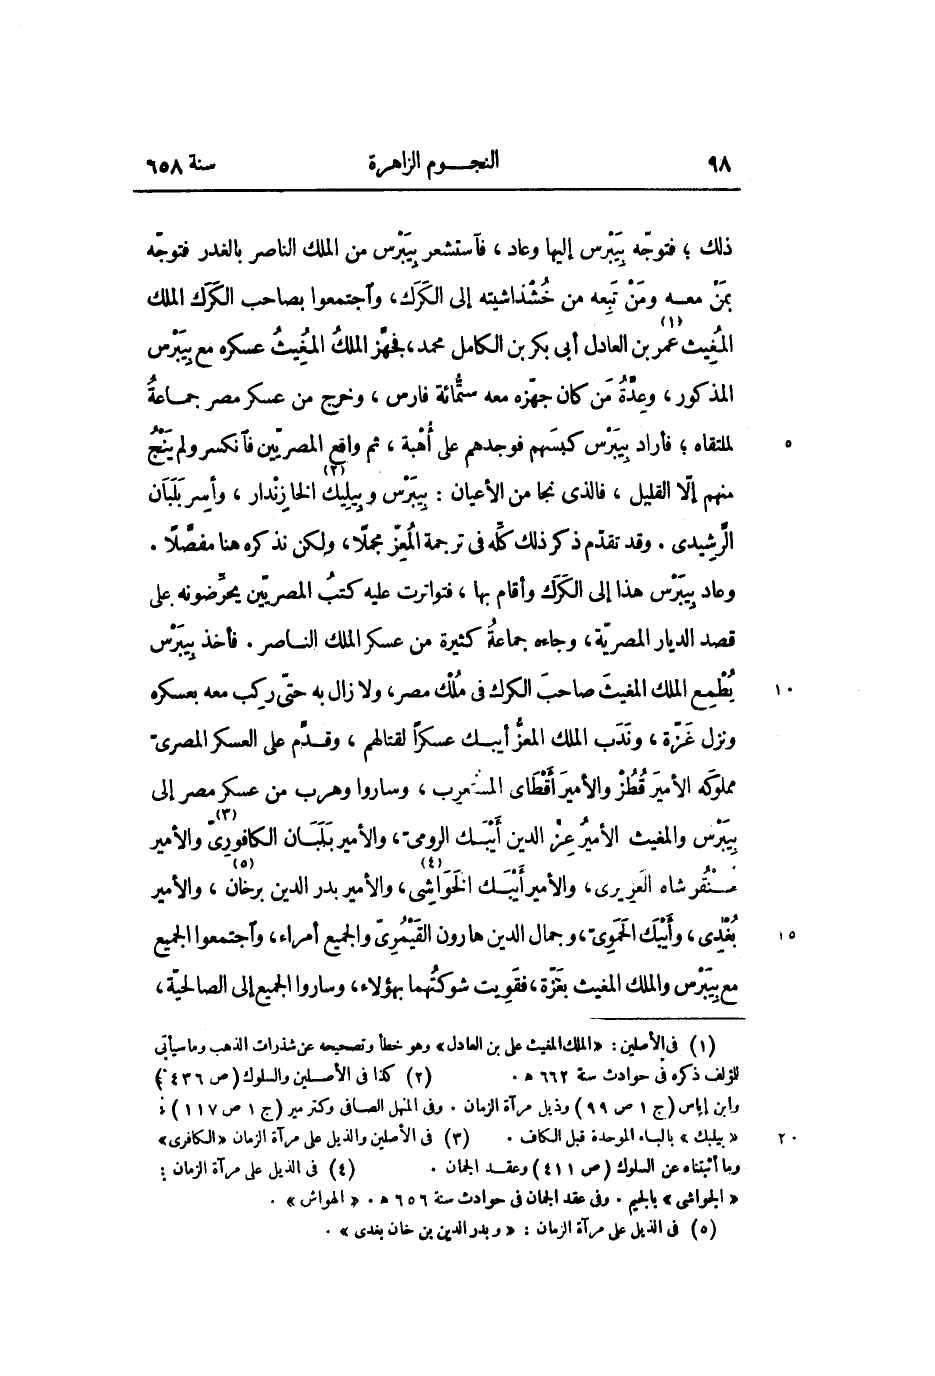 ٩٨ النجـــوم الزاهرة سنة ٦٥٨
ذلك ؛ فتوجّه بِيَبْرس إليها وعاد ، فآستشعر بِيَبْرس من الملك الناصر بالغدر فتوجّه
بمَنْ معــه ومَنْ تَبِعه من خُشْذاشيته إلى الكَرَك، وآجتمعوا بصاحب الكَرَك الملك
المُغِيث (١) عمر بن العادل أبى بكر بن الكامل محمد، بفجهّز الملكُ المُغِيثُ عسكره مع بِيَبْرس
المذكور ، وعِدّةُ مَن كان جهّزه معه ستّمائة فارس ، وخرج من عسكر مصر جمــاعةُ
لملتقاه ؛ فأراد بِيَبْرس كبسَهم فوجدهم على أُهْبة ، ثم واقع المصريّين فآنكسر ولم يَنْجُ ٥
منهم إلّا القليل ، فالذى نجا من الأعيان : بِيَبْرس و بِيلِيك (٢) الخازِنْدار ، وأُسِر بَلَبَان
الرَّشِيدى . وقد تقدّم ذكر ذلك كلِّه فى ترجمة المُعِزّ مجملًا، ولكن نذكره هنا مفصَّلًا .
وعاد بِيَبْرس هذا إلى الكَرَك وأقام بها ، فتواترت عليه كتبُ المصريّين يحرِّضونه على
قصد الديار المصريّة، وجاءه جماعةُ كثيرة من عسكر الملك النــاصر . فأخذ بِيَبْرس
يُطْمِع الملك المغيثَ صاحبَ الكرك فى مُلْك مصر، ولا زال به حتّى ركِب معه بعسكره ١٠
ونزل غَزّة ، ونَدَب الملك المعزُّ أيبــك عسكرًا لقتالهم ، وقــدّم على العسكر المصرىّ
مملوكَه الأميرَ قُطُزْ والأميرَ أَقْطَاى المستعرب ، وساروا وهرب من عسكر مصر إلى
بِيَبْرس والمغيث الأميرُ عِزّ الدين أَيْبَــك الرومىّ، والأمير بَلَبَــان الكافورىّ (٣) والأمير
سُنْقُر شاه العَزِيزى، والأمير أَيْبَــك الخَوَاشِى (٤)، والأمير بدر الدين برخان (٥) ، والأمير
بُغْدِى، وأَيْبَك الحَمَوِىّ، وجمال الدين هارون القَيْمُرِىّ والجميع أمراء، وآجتمعوا الجميع ١٥
مع بِيَبْرس والملك المغيث بغَزّة، فقَوِيت شوكتُهما بهؤلاء، وساروا الجميع إلى الصالحيّة،
(١) فى الأصلين : «الملك المغيث على بن العادل» وهو خطأ وتصحيحه عن شذرات الذهب وما سيأتى
للؤلف ذكره فى حوادث سنة ٦٦٢ ه . (٢) كذا فى الأصــلين والسلوك (ص ٤٣٦)
وابن إياس (ج ١ ص ٩٩) وذيل مرآة الزمان . وفى المنهل الصافى وكترمير (ج ١ ص ١١٧) :
« بيلبك » بالباء الموحدة قبل الكاف . (٣) فى الأصلين والذيل على مرآة الزمان «الكافرى» ٢٠
وما أثبتناه عن السلوك (ص ٤١١) وعقــد الجمان . (٤) فى الذيل على مرآة الزمان :
« الجواشى » بالجيم . وفى عقد الجمان فى حوادث سنة ٦٥٦ ه . « الهواش » .
(٥) فى الذيل على مرآة الزمان : « وبدر الدين بن خان بغدى » .